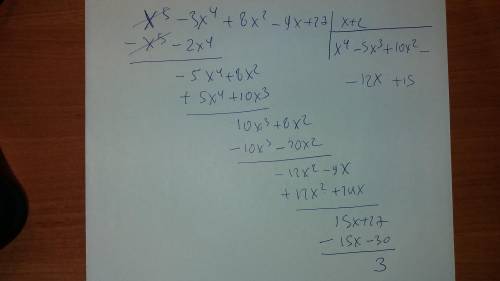 x⁵ - 3x⁴ + 8x² - 4x + 27 | x+2
- x⁵ - 2x⁴ x⁴ - 5x³ + 10x² -
- 5x⁴ + 8x² - 12x + 15
+ 5x⁴ + 10x3
10x³ + 8x2
- 10x³ - 30x2
- 12x² - 4x
+ 12x² + 24x
15x + 27
- 15x - 30
3